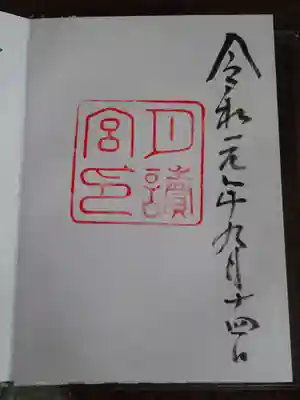 令和元年九月十四日
月讀
宮印